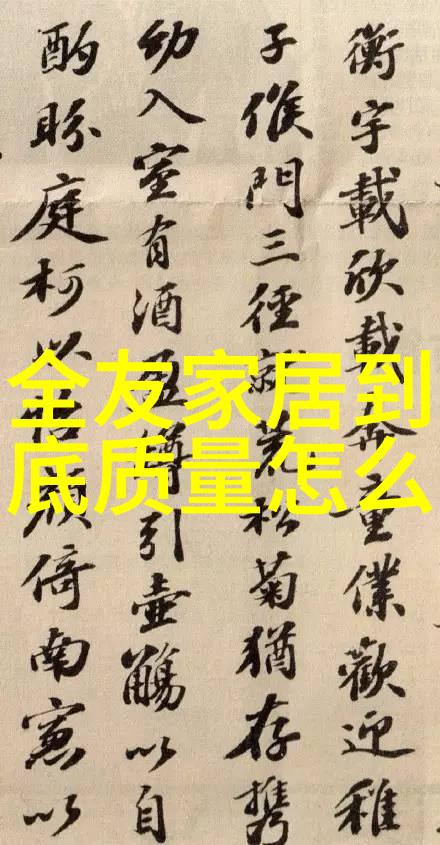 衡宇載欣載奔童僕歡迎稚
子候門三徑就荒松菊猶存携
幼入室有酒盈罇引壺觴以自
酌眄庭柯以怡顔倚南窻以
全友家居到
底质量怎么